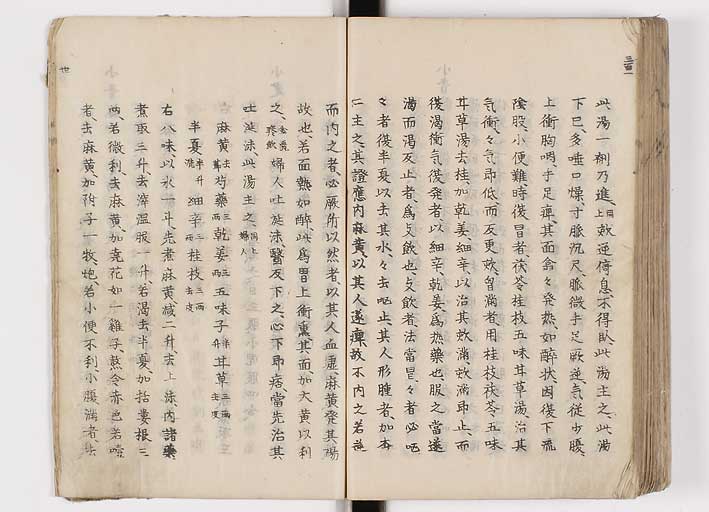 此湯一剤乃進同上欬逆倚息不得臥此湯主之此湯
下已多唾口燥寸脈沉尺脈微手足厥逆氣從少腹
上衝胸咽手足痺其面翕々發熱如酔状因復下流
陰股小便難時復冒者茯苓桂枝五味耳草湯治其
氣衝々氣即低而反更欬胷滿者用桂枝茯苓五味
耳草湯去桂加乾姜細辛以治其欬滿欬滿即止而
復渇衝氣復發者以細辛乾姜爲熱藥也服之當遂
渇而渇反止者爲支飲也支飲者法當冒々者必呕
々者復半夏以去其水々去呕止其人形腫者加杏
仁主之其證應内麻黄以其人遂痺故不内之若
而内之者必厥所以然者以其人血虚麻黄發其陽
故也若面熱如酔此爲胃上衝熏其面加大黄以利
之金匱痰飲婦人吐涎沫醫反下之心下即痞當先治其
吐涎沫此湯主之同上婦人
麻黄去芍藥三兩乾姜三兩五味子半升耳草三兩
半夏半升洗細辛三兩桂枝三兩去皮
右八味以水一斗先煮麻黄減二升去上沫内諸藥
煮取三升去滓温服一升若渇去半夏加括蔞根三
兩若微利去麻黄加蕘花如一雞子熬令赤色若噎
者去麻黄加附子一牧炮若小便不利小腹滿者去